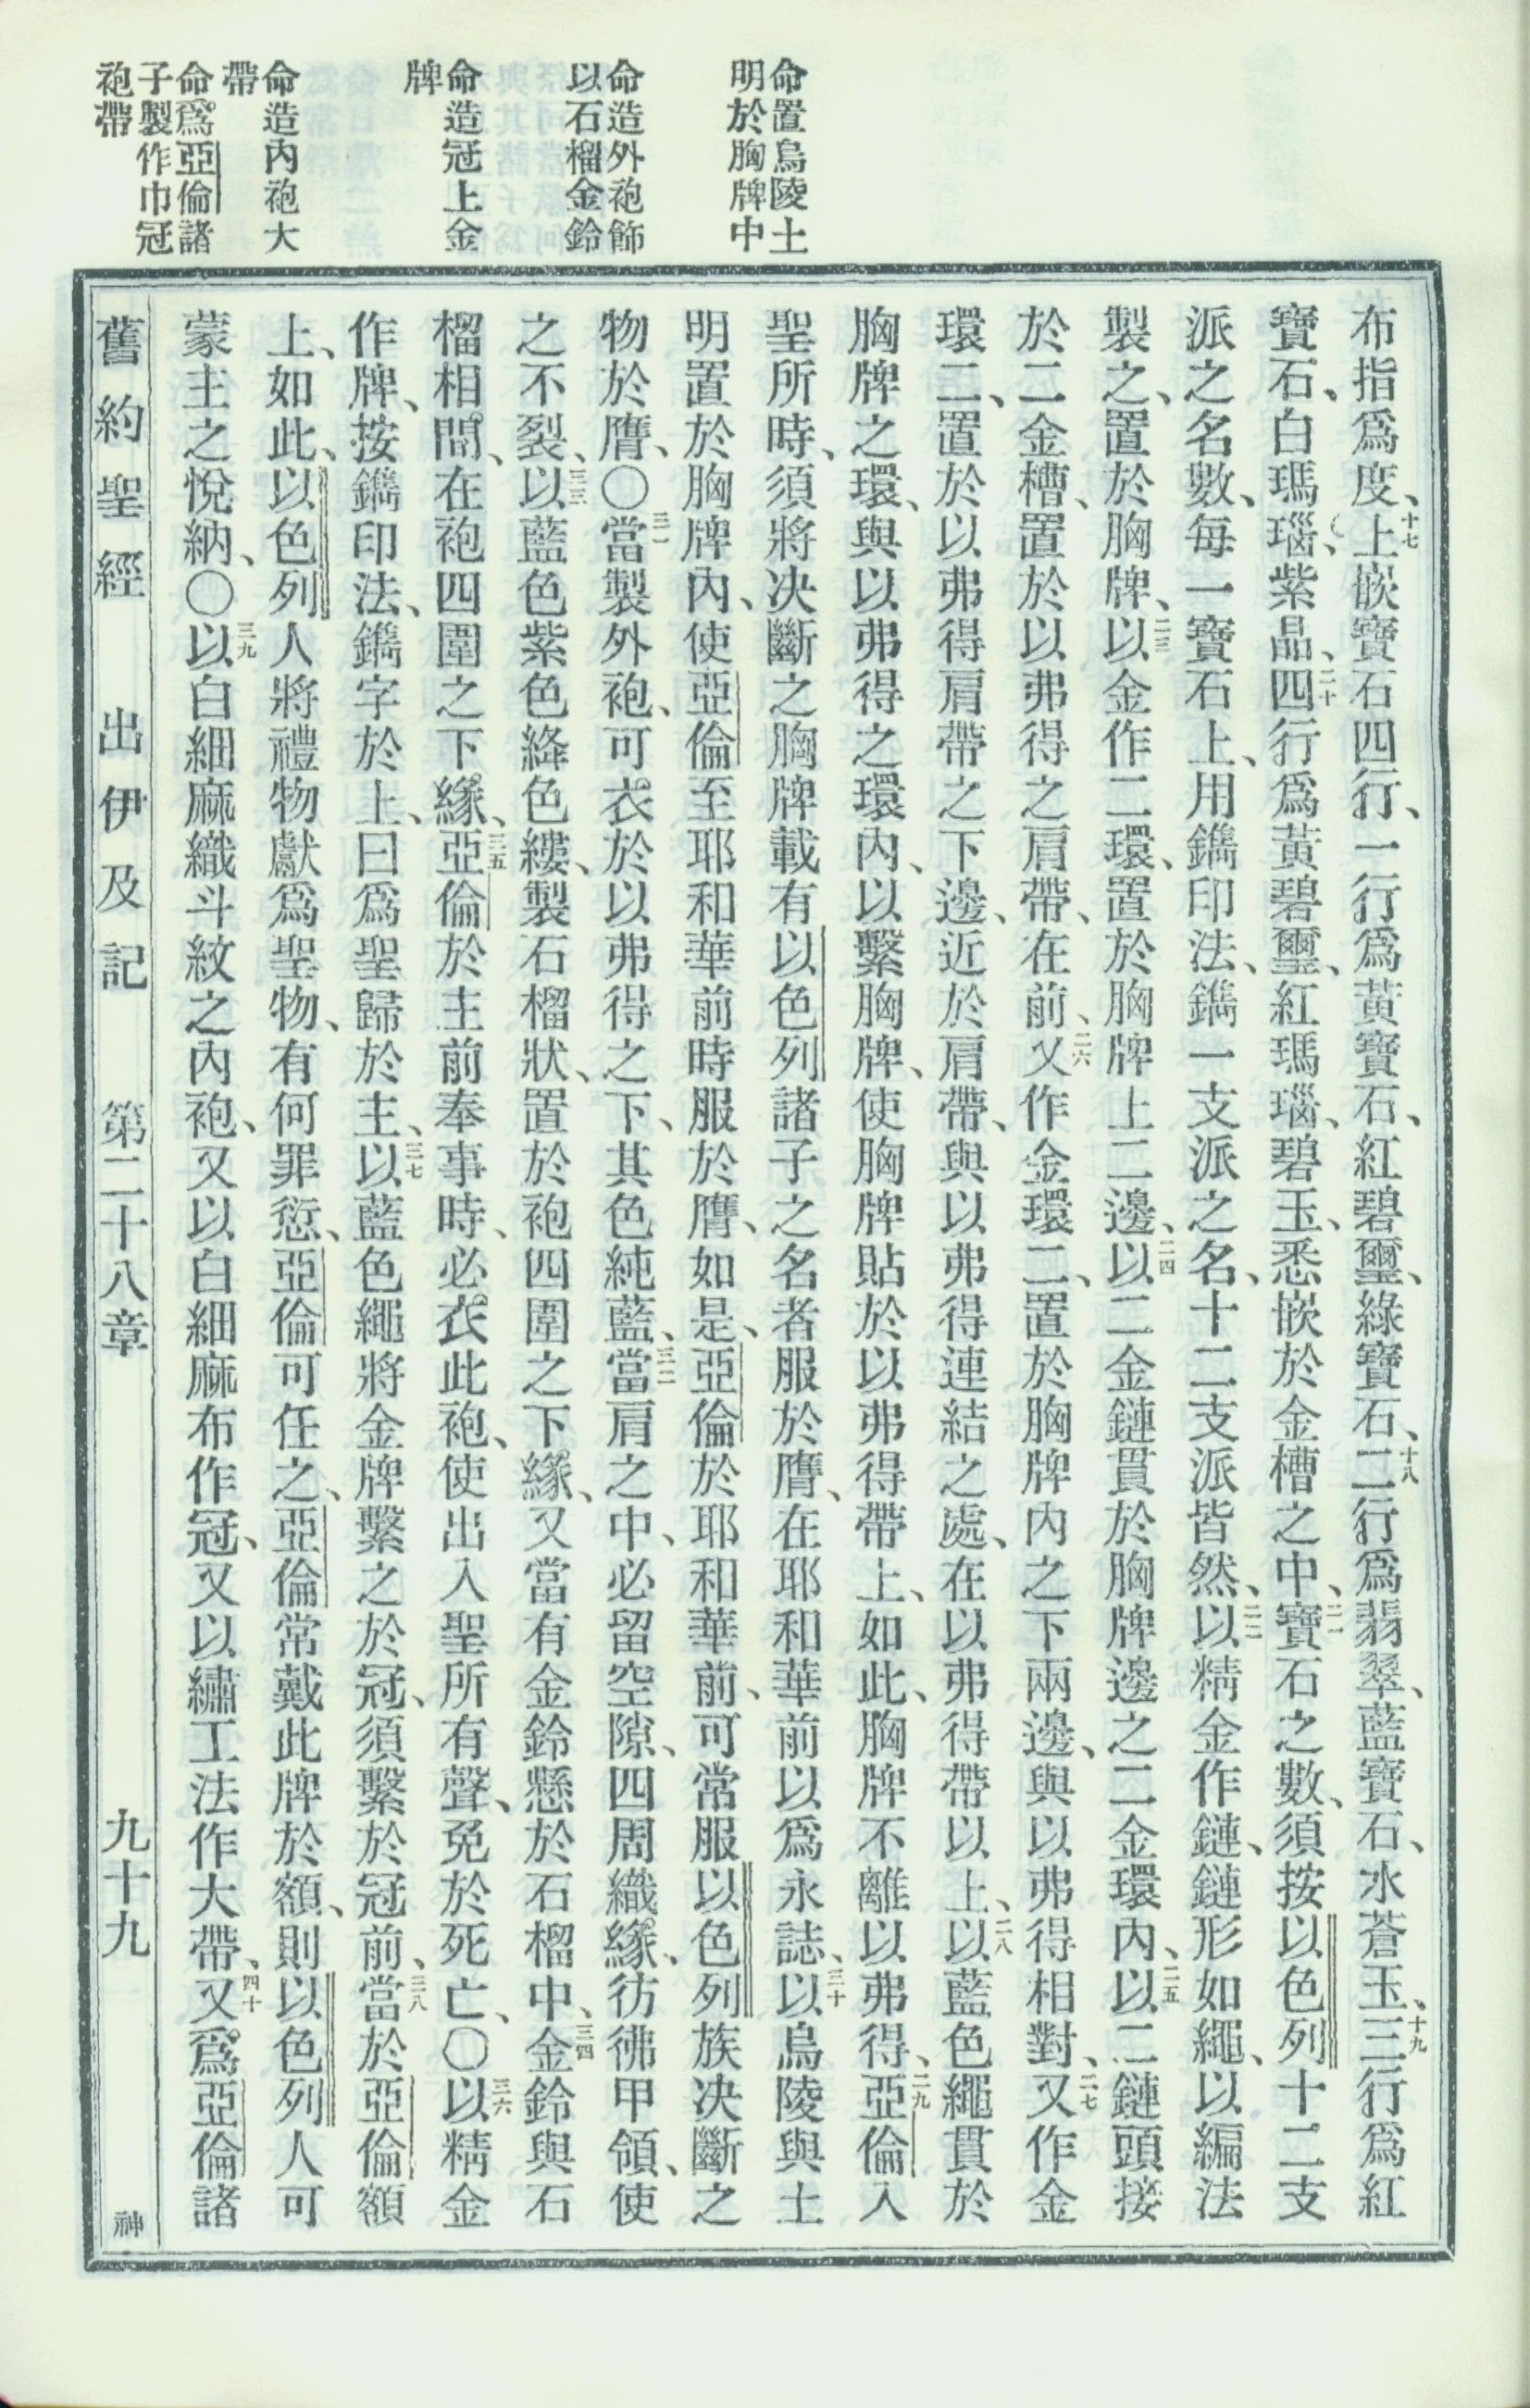 命置烏陵土
明於胸牌中
命造外袍飾
以石榴金鈴
命造冠上金
牌
命造內袍大
帶
命爲亞倫諸
子製作巾冠
袍帶
布指爲度、十七上嵌寶石四行、一行爲黃寶石、紅碧璽、綠寶石、十八二行爲翡翠、藍寶石、水蒼玉、十九三行爲紅
寶石、白瑪瑙、紫晶、二十四行爲黃碧璽、紅瑪瑙、碧玉、悉嵌於金槽之中、二一寶石之數、須按以色列十二支
派之名數、每一寶石上、用鐫印法、鐫一支派之名、十二支派皆然、二二以精金作鏈、鏈形如繩、以編法
製之、置於胸牌、二三以金作二環、置於胸牌上二邊、二四以二金鏈貫於胸牌邊之二金環內、二五以二鏈頭接
於二金槽、置於以弗得之肩帶、在前、二六又作金環二、置於胸牌內之下兩邊、與以弗得相對、二七又作金
環二、置於以弗得肩帶之下邊、近於肩帶、與以弗得連結之處、在以弗得帶以上、二八以藍色繩貫於
胸牌之環、與以弗得之環內、以繫胸牌、使胸牌貼於以弗得帶上、如此、胸牌不離以弗得、二九亞倫入
聖所時、須將決斷之胸牌載有以色列諸子之名者服於膺、在耶和華前以爲永誌、三十以烏陵與土
明置於胸牌內、使亞倫至耶和華前時服於膺、如是、亞倫於耶和華前、可常服以色列族決斷之
物於膺、〇三一當製外袍、可衣於以弗得之下、其色純藍、三二當肩之中、必留空隙、四周織緣、彷彿甲領、使
之不裂、三三以藍色紫色絳色縷、製石榴狀、置於袍四圍之下緣、又當有金鈴懸於石榴中、三四金鈴與石
榴相間、在袍四圍之下緣、三五亞倫於主前奉事時、必衣此袍、使出入聖所有聲、免於死亡、〇三六以精金
作牌、按鐫印法、鐫字於上、曰爲聖歸於主、三七以藍色繩將金牌繫之於冠、須繫於冠前、三八當於亞倫額
上、如此、以色列人將禮物獻爲聖物、有何罪愆、亞倫可任之、亞倫常戴此牌於額、則以色列人可
蒙主之悅納、〇三九以白細麻織斗紋之內袍、又以白細麻布作冠、又以繡工法作大帶、四十又爲亞倫諸
舊約聖經　出伊及記　第二十八章　九十九　神